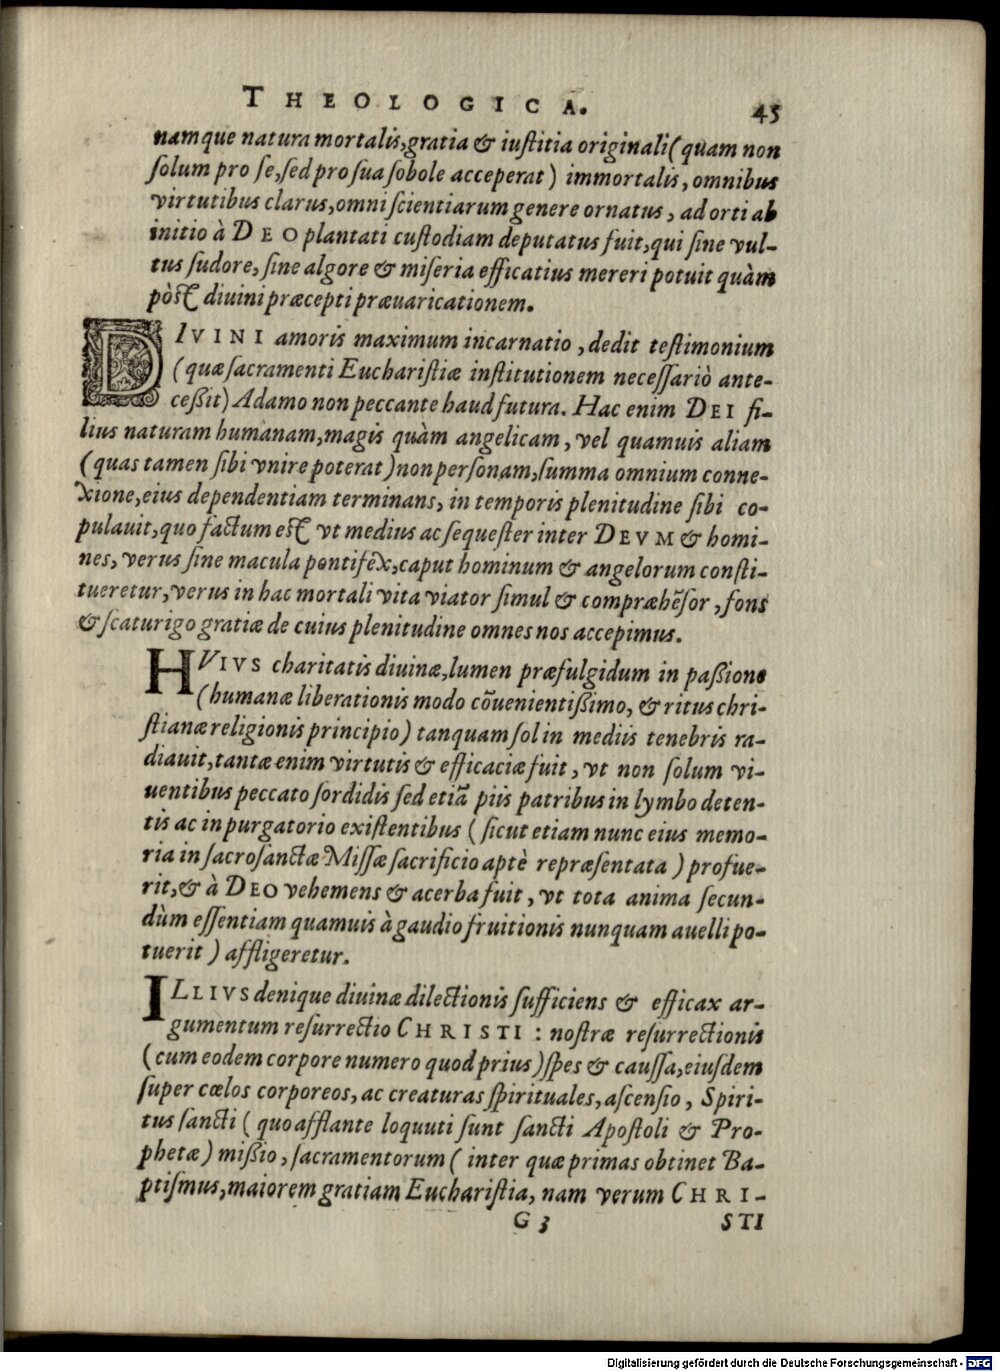 THEOLOGICA. 45
namque natura mortalis, gratia & iuſtitia originali (quam non
ſolum pro ſe, ſed pro ſua ſobole acceperat) immortalis, omnibus
virtutibus clarus, omni ſcientiarum genere ornatus, ad orti ab
initio à DEO plantati cuſtodiam deputatus fuit, qui ſine vul-
tus ſudore, ſine algore & miſeria efficatius mereri potuit quàm
pòſt diuini præcepti præuaricationem.
DIVINI amoris maximum incarnatio, dedit teſtimonium
(quæ ſacramenti Euchariſtiæ inſtitutionem neceſſariò ante-
ceßit) Adamo non peccante haud futura. Hac enim DEI fi-
lius naturam humanam, magis quàm angelicam, vel quamuis aliam
(quas tamen ſibi vnire poterat) non perſonam, ſumma omnium conne-
xione, eius dependentiam terminans, in temporis plenitudine ſibi co-
pulauit, quo factum eſt vt medius ac ſequeſter inter DEVM & homi-
nes, verus ſine macula pontifex, caput hominum & angelorum conſti-
tueretur, verus in hac mortali vita viator ſimul & compræhẽſor, fons
& ſcaturigo gratiæ de cuius plenitudine omnes nos accepimus.
HVIVS charitatis diuinæ, lumen præfulgidum in paßione
(humanæ liberationis modo cõuenientißimo, & ritus chri-
ſtianæ religionis principio) tanquam ſol in mediis tenebris ra-
diauit, tantæ enim virtutis & efficaciæ fuit, vt non ſolum vi-
uentibus peccato ſordidis ſed etiã piis patribus in lymbo deten-
tis ac in purgatorio exiſtentibus (ſicut etiam nunc eius memo-
ria in ſacroſanctæ Miſſæ ſacrificio aptè repræſentata) profue-
rit, & à DEO vehemens & acerba fuit, vt tota anima ſecun-
dùm eſſentiam quamuis à gaudio fruitionis nunquam auelli po-
tuerit) affligeretur.
ILLIVS denique diuinæ dilectionis ſufficiens & efficax ar-
gumentum reſurrectio CHRISTI: noſtræ reſurrectionis
(cum eodem corpore numero quod prius) ſpes & cauſſa, eiuſdem
ſuper cœlos corporeos, ac creaturas ſpirituales, aſcenſio, Spiri-
tus ſancti (quo afflante loquuti ſunt ſancti Apoſtoli & Pro-
phetæ) mißio, ſacramentorum (inter quæ primas obtinet Ba-
ptiſmus, maiorem gratiam Euchariſtia, nam verum CHRI-
G 3 STI
Digitalisierung gefördert durch die Deutsche Forschungsgemeinschaft - DFG